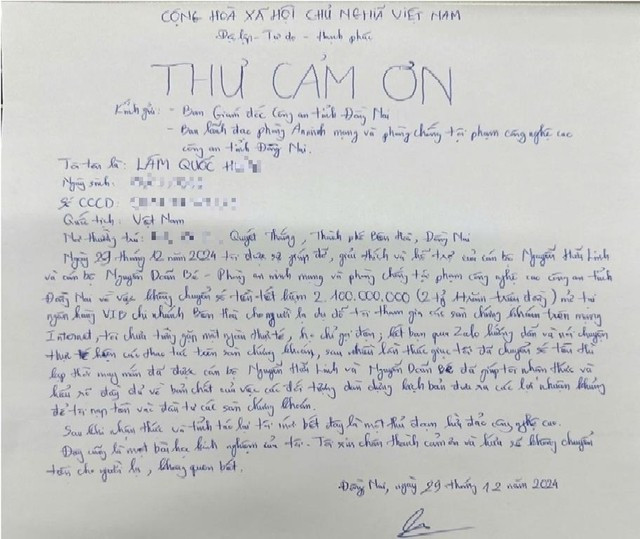 CỘNG HOÀ XÃ HỘI CHỦ NGHĨA VIỆT NAM
Độc lập - Tự do - Hạnh phúc
THƯ CẢM ƠN
Kính gửi: - Ban Giám đốc Công an tỉnh Đồng Nai
- Ban lãnh đạo phòng An ninh mạng và phòng chống tội phạm công nghệ cao
công an tỉnh Đồng Nai.
Tôi tên là: LÂM QUỐC
Ngày sinh:
Số CCCD:
Quốc tịch: Việt Nam
Nơi thường trú: Quyết Thắng, Thành phố Biên Hoà, Đồng Nai
Ngày 29 tháng 12 năm 2024 tôi được sự giúp đỡ, giải thích và hỗ trợ của cán bộ Nguyễn Hữu Linh
và cán bộ Nguyễn Doãn Bê - Phòng an ninh mạng và phòng chống tội phạm công nghệ cao công an tỉnh
Đồng Nai về việc không chuyển số tiền tiết kiệm 2.100.000.000 (2 tỷ 1 trăm triệu đồng) mở tại
ngân hàng VIB chi nhánh Biên Hoà cho người lạ dụ dỗ tôi tham gia các sàn chứng khoán trên mạng
Internet, tôi chưa từng gặp mặt ngoài thực tế, họ chỉ gọi điện, kết bạn qua Zalo hướng dẫn và nói chuyện
thực hiện các thao tác trên sàn chứng khoán, sau nhiều lần thúc giục tôi đã chuyển số tiền thì
kịp thời may mắn đã được cán bộ Nguyễn Hữu Linh và Nguyễn Doãn Bê đã giúp tôi nhận thức và
hiểu rõ đầy đủ về bản chất của việc các đối tượng dàn dựng kịch bản đưa ra các lợi nhuận khủng
để tôi nạp tiền vào đầu tư các sàn chứng khoán.
Sau khi nhận thức và tỉnh táo lại tôi mới biết đây là một thủ đoạn lừa đảo công nghệ cao.
Đây cũng là một bài học kinh nghiệm của tôi. Tôi xin chân thành cảm ơn và hứa sẽ không chuyển
tiền cho người lạ, không quen biết.
Đồng Nai, ngày 29 tháng 12 năm 2024